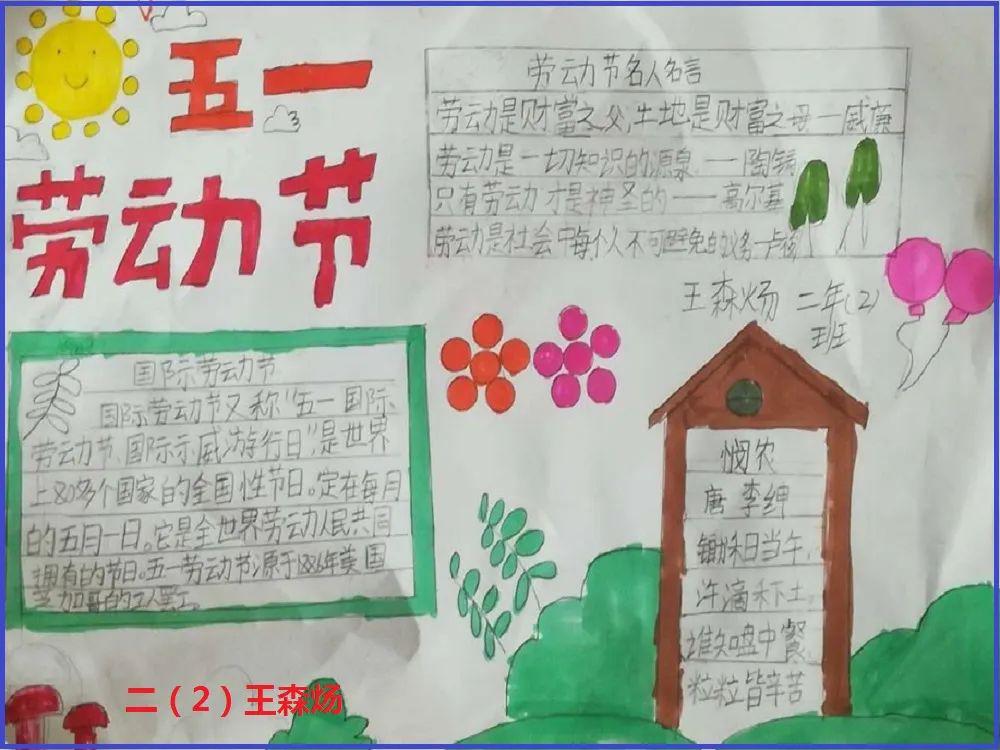 五一
劳动节
劳动节名人名言
劳动是财富之父,土地是财富之母——威廉
劳动是一切知识的源泉——陶铸
只有劳动才是神圣的——高尔基
劳动是社会中每个人不可避免的义务—卢梭
王森炀 二年(2)
班
国际劳动节
国际劳动节又称“五一国际
劳动节、国际示威游行日”,是世界
上80多个国家的全国性节日。定在每月
的五月一日。它是全世界劳动人民共同
拥有的节日。五一劳动节源于1886年美国
芝加哥的工人罢工。
悯农
唐 李绅
锄禾日当午,
汗滴禾下土。
谁知盘中餐,
粒粒皆辛苦
二(2)王森炀